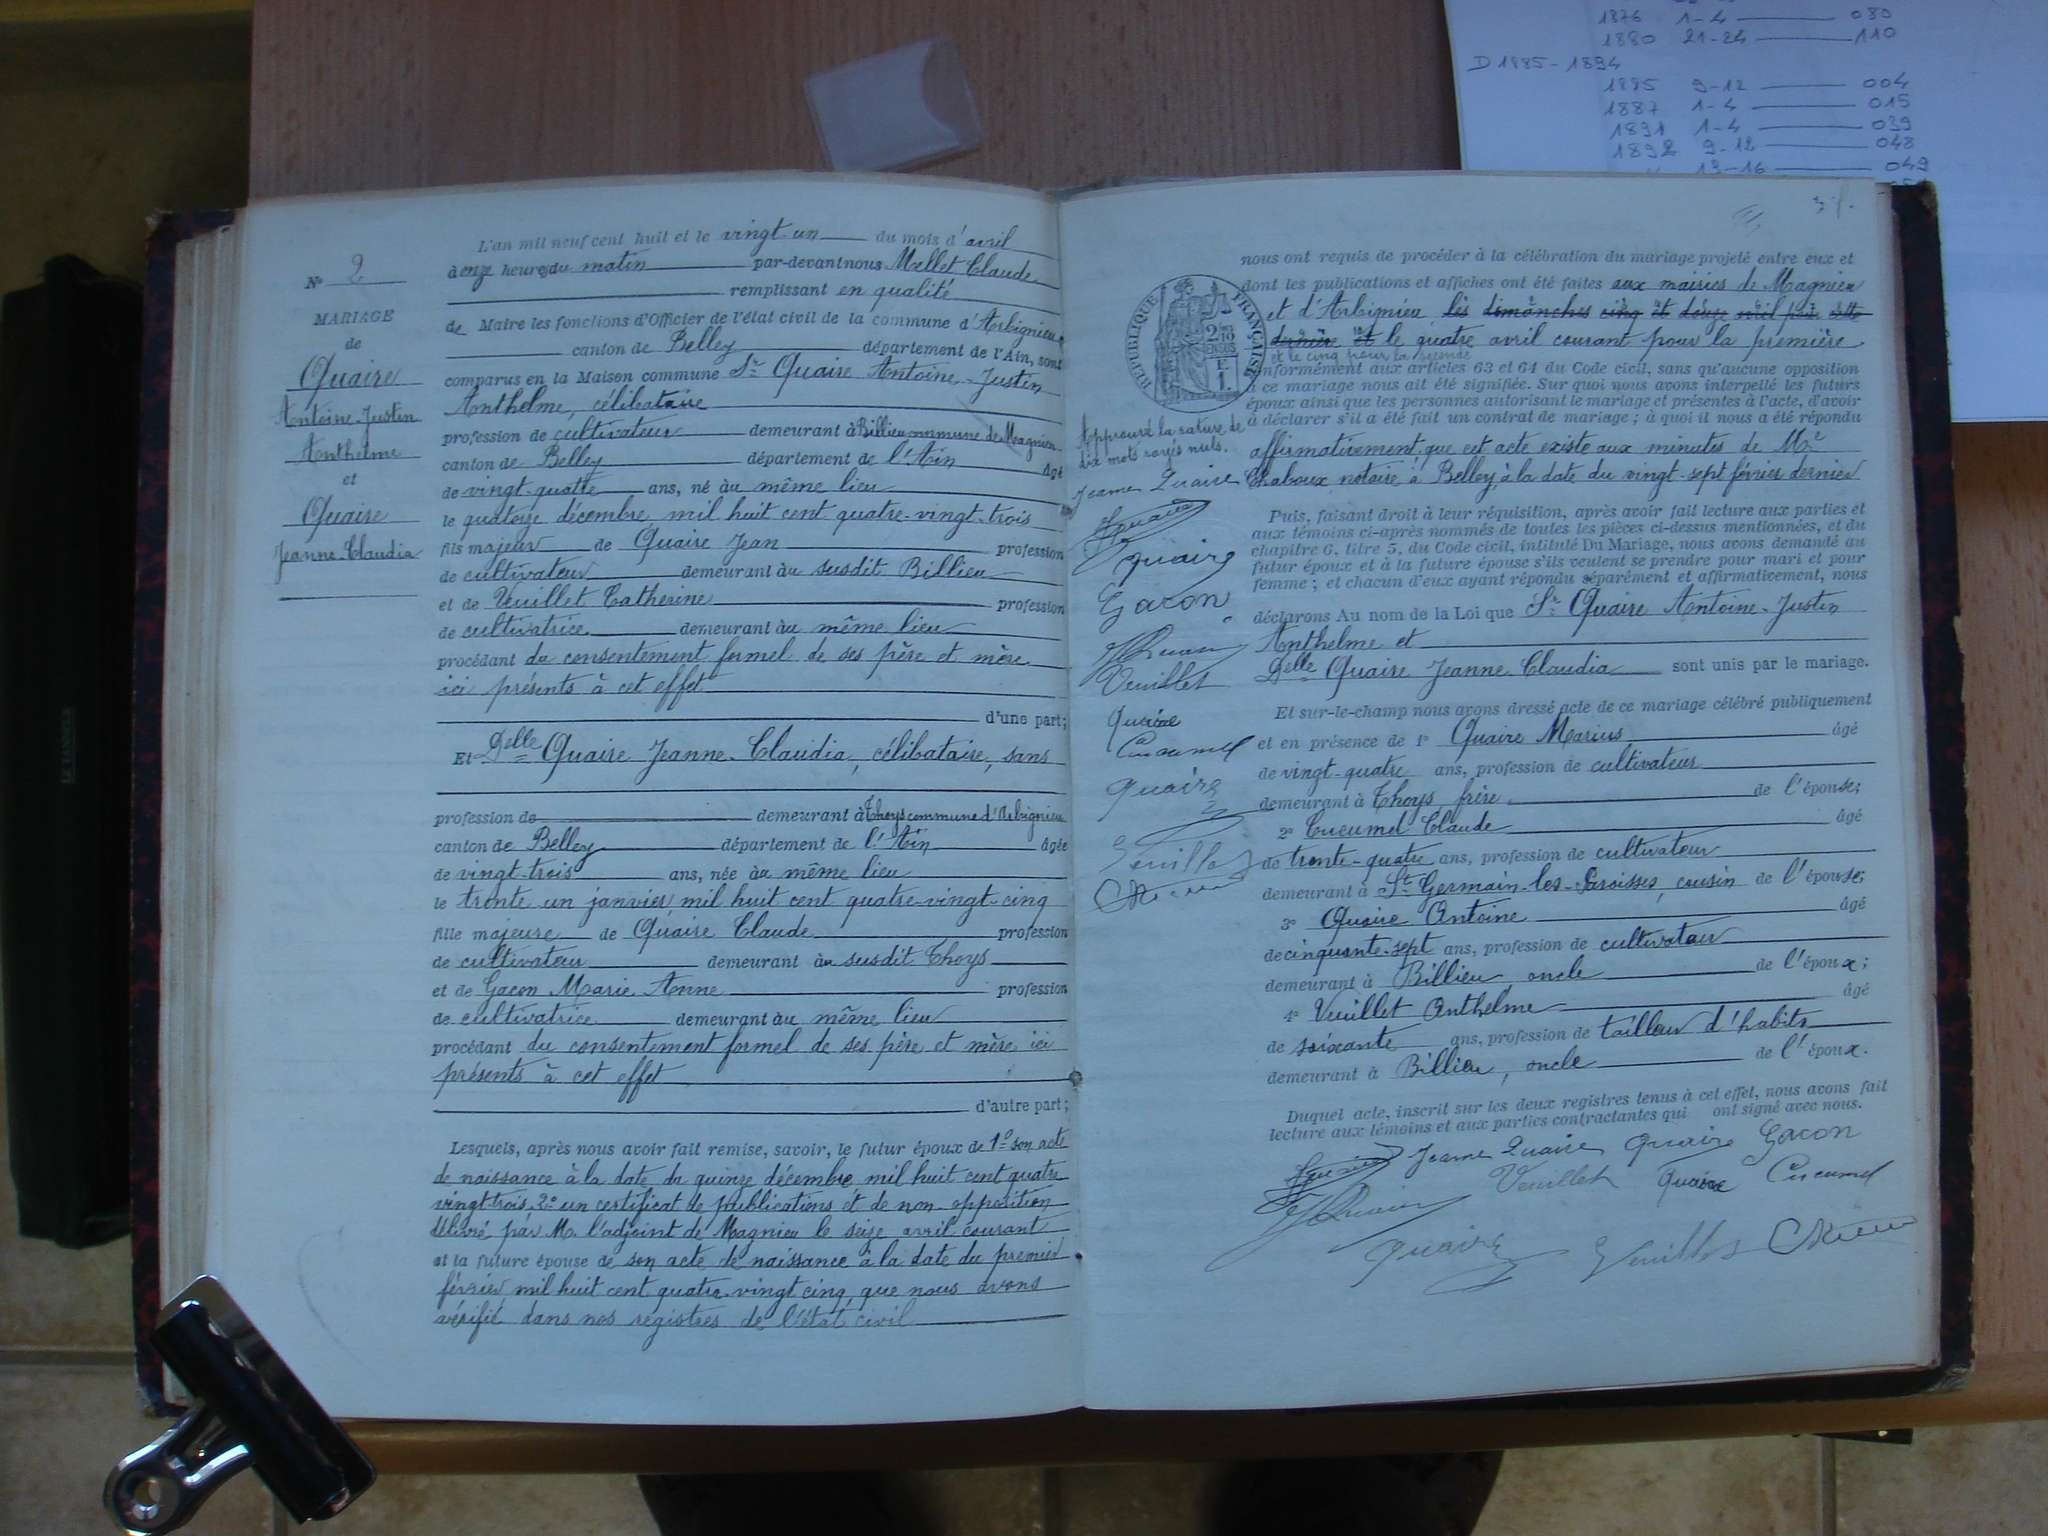 1876 1-4 080
1880 21-24 110
D 1885-1894
1885 9-12 004
1887 1-4 015
1891 1-4 039
1892 9-12 048
13-16 049
LE TANNEUR
N° 2
MARIAGE
de
Quaire
Antoine-Justin
Anthelme
et
Quaire
Jeanne-Claudia
L'an mil neuf cent huit et le vingt-un du mois d'avril
à onze heures du matin par-devant nous Mallet Claude
remplissant en qualité
de Maire les fonctions d'Officier de l'état civil de la commune d'Arbignieu
canton de Belley département de l'Ain, sont
comparus en la Maison commune Sr Quaire Antoine-Justin
Anthelme, célibataire
profession de cultivateur demeurant à Billieu commune de Magnieu
canton de Belley département de l'Ain âgé
de vingt-quatre ans, né au même lieu
le quatorze décembre mil huit cent quatre-vingt-trois
fils majeur de Quaire Jean profession
de cultivateur demeurant au susdit Billieu
et de Veuillet Catherine profession
de cultivatrice demeurant au même lieu
procédant du consentement formel de ses père et mère
ici présents à cet effet
d'une part;
Et Delle Quaire Jeanne-Claudia, célibataire, sans
profession de demeurant à Thoys commune d'Arbignieu
canton de Belley département de l'Ain âgée
de vingt-trois ans, née au même lieu
le trente un janvier mil huit cent quatre-vingt-cinq
fille majeure de Quaire Claude profession
de cultivateur demeurant au susdit Thoys
et de Gacon Marie-Anne profession
de cultivatrice demeurant au même lieu
procédant du consentement formel de ses père et mère ici
présents à cet effet
d'autre part;
Lesquels, après nous avoir fait remise, savoir, le futur époux de 1° son acte
de naissance à la date du quinze décembre mil huit cent quatre
vingt-trois, 2° un certificat de publications et de non opposition
délivré par M. l'adjoint de Magnieu le seize avril courant
et la future épouse de son acte de naissance à la date du premier
février mil huit cent quatre-vingt cinq que nous avons
vérifié dans nos registres de l'état civil
nous ont requis de procéder à la célébration du mariage projeté entre eux et
dont les publications et affiches ont été faites aux mairies de Magnieu
et d'Arbignieu les dimanches cinq et douze
dernière et le quatre avril courant pour la première
et le cinq pour la seconde
conformément aux articles 63 et 64 du Code civil, sans qu'aucune opposition
à ce mariage nous ait été signifiée. Sur quoi nous avons interpellé les futurs
époux ainsi que les personnes autorisant le mariage et présentes à l'acte, d'avoir
à déclarer s'il a été fait un contrat de mariage; à quoi il nous a été répondu
affirmativement que cet acte existe aux minutes de Me
Chaboux notaire à Belley à la date du vingt-sept février dernier
Puis, faisant droit à leur réquisition, après avoir fait lecture aux parties et
aux témoins ci-après nommés de toutes les pièces ci-dessus mentionnées, et du
chapitre 6, titre 5, du Code civil, intitulé Du Mariage, nous avons demandé au
futur époux et à la future épouse s'ils veulent se prendre pour mari et pour
femme; et chacun d'eux ayant répondu séparément et affirmativement, nous
déclarons Au nom de la Loi que Sr Quaire Antoine-Justin
Anthelme et
Delle Quaire Jeanne Claudia sont unis par le mariage.
Et sur-le-champ nous avons dressé acte de ce mariage célébré publiquement
et en présence de 1° Quaire Marius âgé
de vingt-quatre ans, profession de cultivateur
demeurant à Thoys frère de l'épouse;
2° Cucumel Claude âgé
de trente-quatre ans, profession de cultivateur
demeurant à St Germain-les-Paroisses, cousin de l'épouse;
3° Quaire Antoine âgé
de cinquante-sept ans, profession de cultivateur
demeurant à Billieu, oncle de l'époux;
4° Veuillet Anthelme âgé
de soixante ans, profession de tailleur d'habits
demeurant à Billieu, oncle de l'époux.
Duquel acte, inscrit sur les deux registres tenus à cet effet, nous avons fait
lecture aux témoins et aux parties contractantes qui ont signé avec nous.
Jeanne Quaire Quaire Gacon
Veuillet Quaire Cucumel
Quaire Veuillet
RÉPUBLIQUE FRANÇAISE
Approuvé la rature de
dix mots rayés nuls.
Jeanne Quaire
Quaire
Gacon
Veuillet
Quaire
Cucumel
Quaire
Veuillet